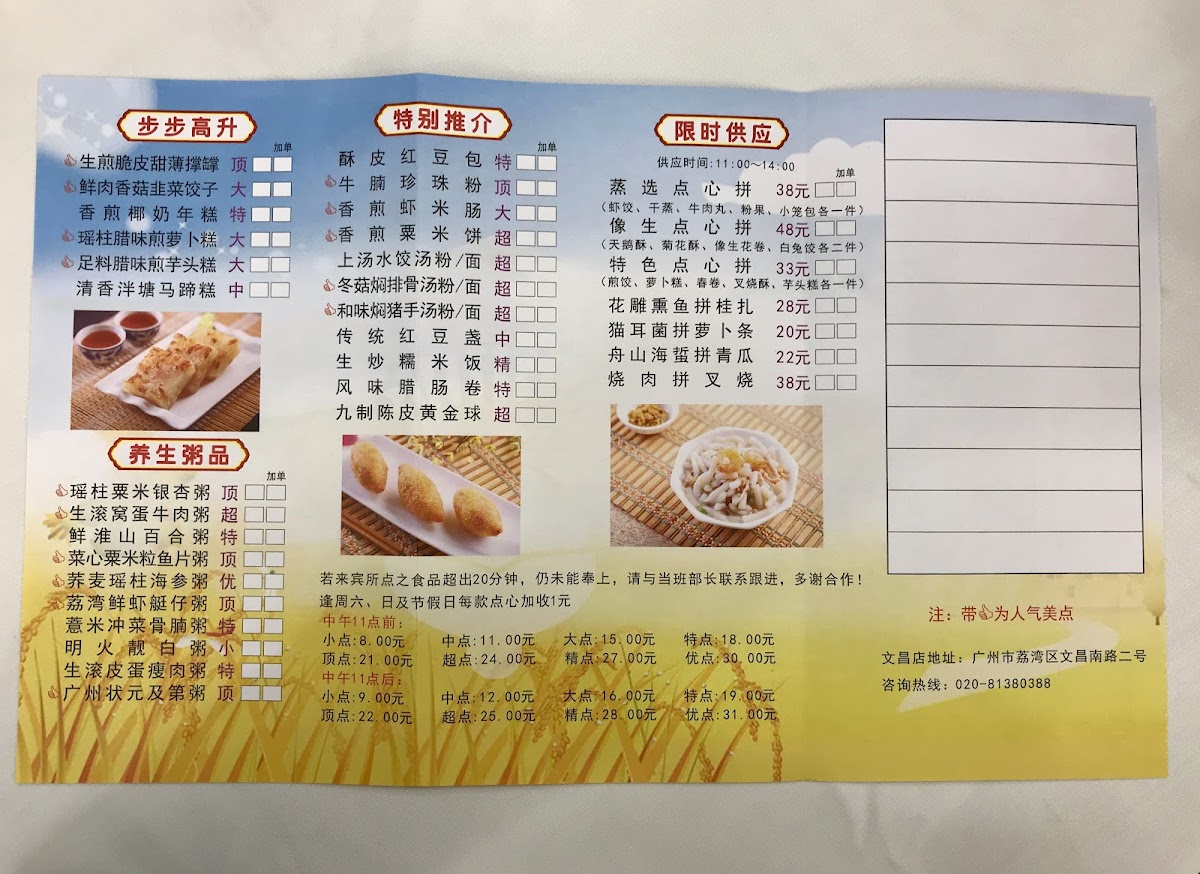 步步高升
加单
生煎脆皮甜薄撑罉 顶
鲜肉香菇韭菜饺子 大
香煎椰奶年糕 特
瑶柱腊味煎萝卜糕 大
足料腊味煎芋头糕 大
清香泮塘马蹄糕 中
养生粥品
加单
瑶柱粟米银杏粥 顶
生滚窝蛋牛肉粥 超
鲜淮山百合粥 特
菜心粟米粒鱼片粥 顶
荞麦瑶柱海参粥 优
荔湾鲜虾艇仔粥 顶
薏米冲菜骨腩粥 特
明火靓白粥 小
生滚皮蛋瘦肉粥 特
广州状元及第粥 顶
特别推介
加单
酥皮红豆包 特
牛腩珍珠粉 顶
香煎虾米肠 大
香煎粟米饼 超
上汤水饺汤粉/面 超
冬菇焖排骨汤粉/面 超
和味焖猪手汤粉/面 超
传统红豆盏 中
生炒糯米饭 精
风味腊肠卷 特
九制陈皮黄金球 超
限时供应
供应时间:11:00~14:00
加单
蒸选点心拼 38元
(虾饺、干蒸、牛肉丸、粉果、小笼包各一件)
像生点心拼 48元
(天鹅酥、菊花酥、像生花卷、白兔饺各二件)
特色点心拼 33元
(煎饺、萝卜糕、春卷、叉烧酥、芋头糕各一件)
花雕熏鱼拼桂扎 28元
猫耳菌拼萝卜条 20元
舟山海蜇拼青瓜 22元
烧肉拼叉烧 38元
若来宾所点之食品超出20分钟，仍未能奉上，请与当班部长联系跟进，多谢合作！
逢周六、日及节假日每款点心加收1元
中午11点前：
小点:8.00元 中点:11.00元 大点:15.00元 特点:18.00元
顶点:21.00元 超点:24.00元 精点:27.00元 优点:30.00元
中午11点后：
小点:9.00元 中点:12.00元 大点:16.00元 特点:19.00元
顶点:22.00元 超点:25.00元 精点:28.00元 优点:31.00元
注：带为人气美点
文昌店地址：广州市荔湾区文昌南路二号
咨询热线：020-81380388